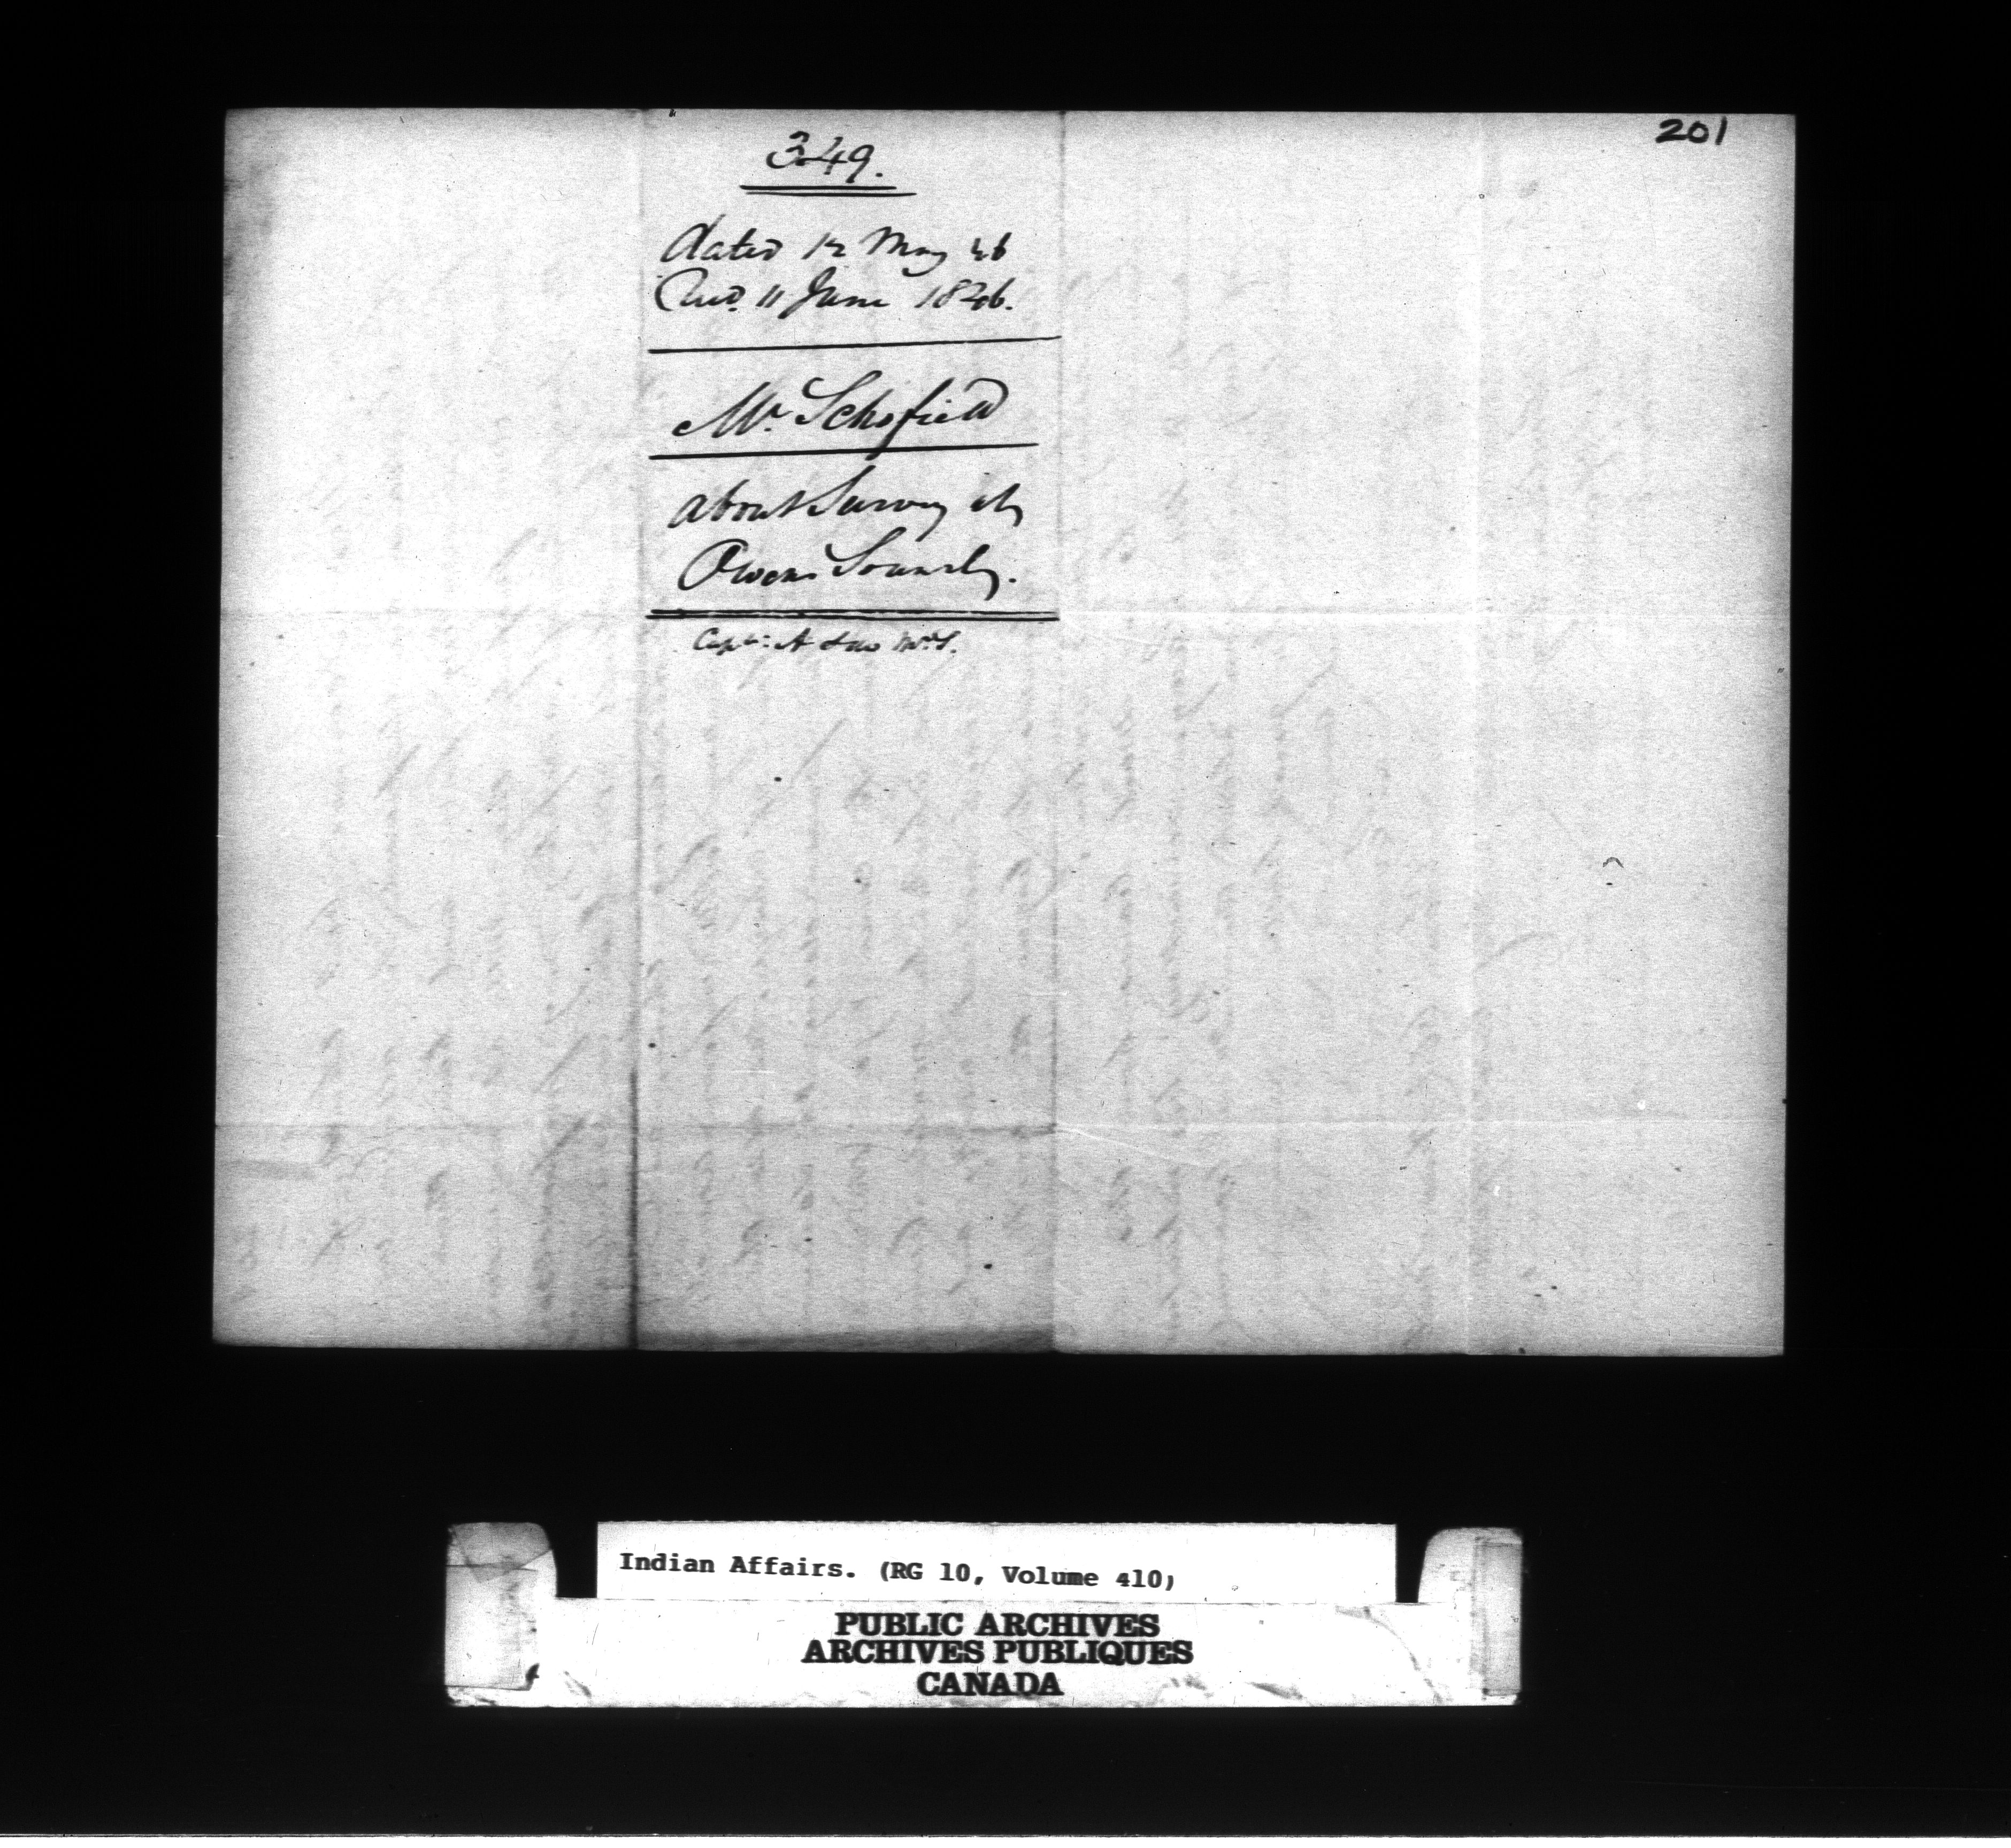 201
349.
dated 12 May 46
Recd. 11 June 1846.
Mr. Schofield
about Survey at
Owens Sound.
Capt: A
Indian Affairs. (RG 10, Volume 410)
PUBLIC ARCHIVES
ARCHIVES PUBLIQUES
CANADA